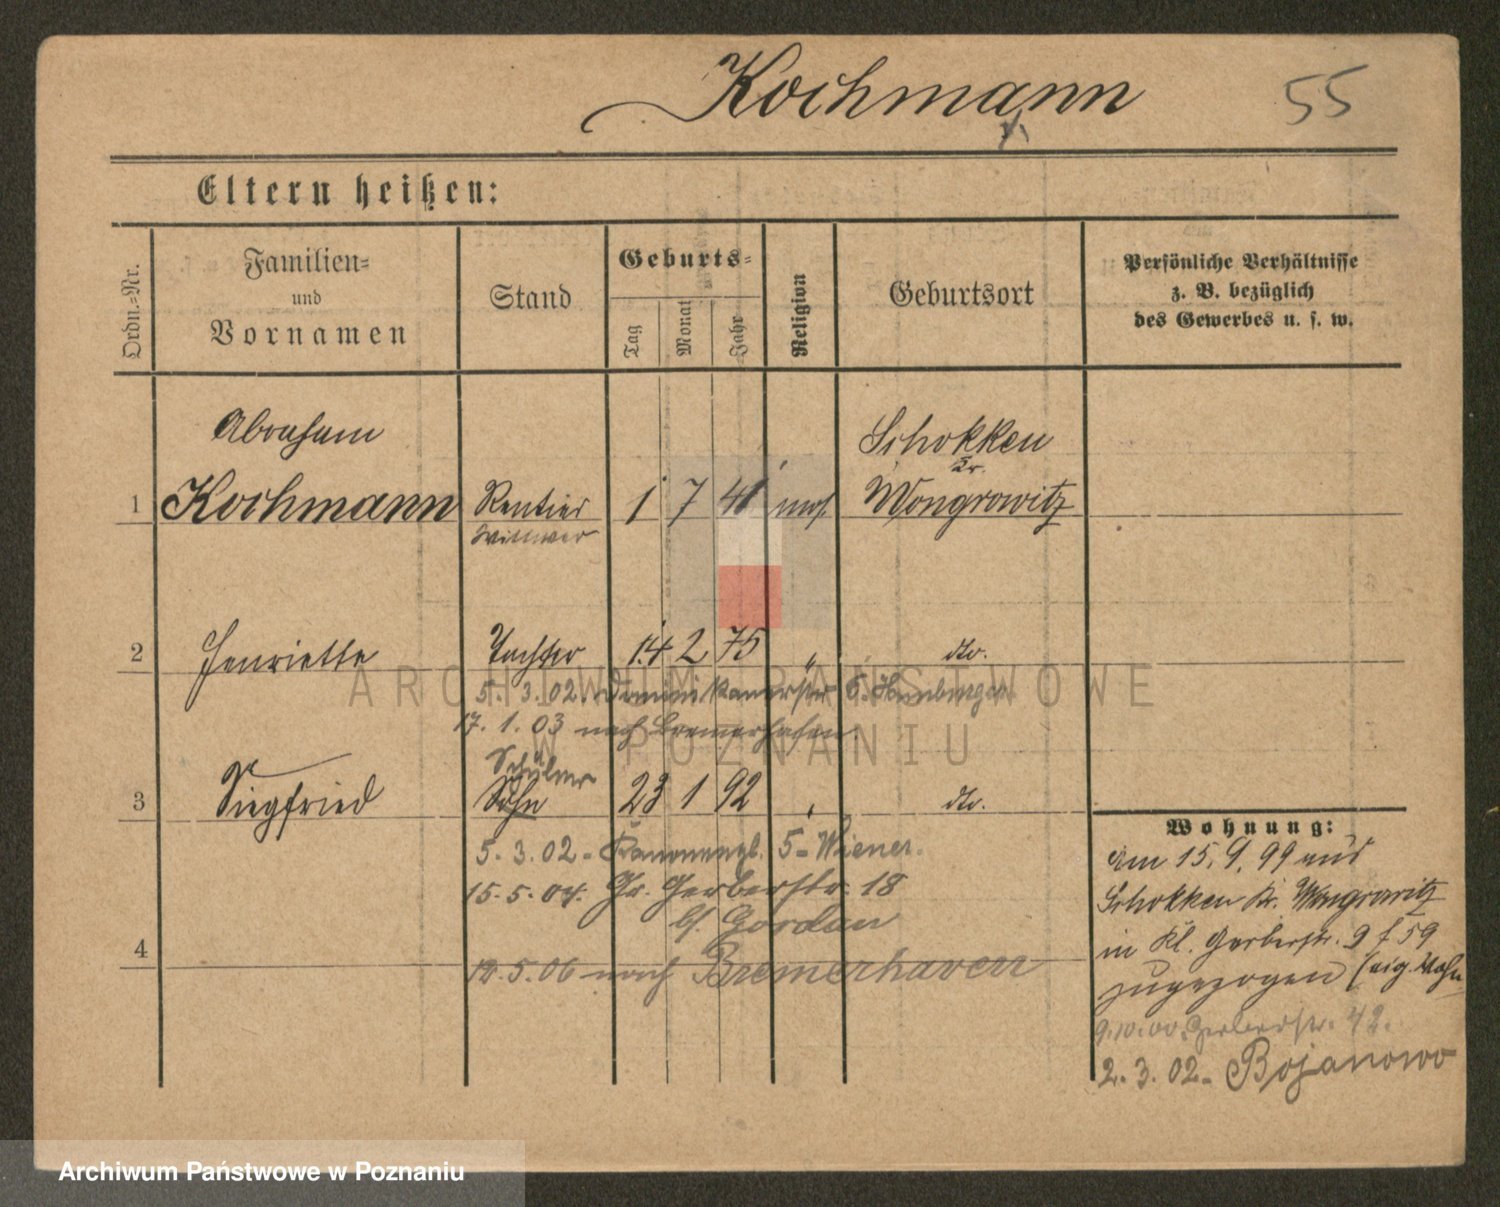 Kochmann 55
Eltern heißen:
Ordn.-Nr.
Familien-
und
Vornamen
Stand
Geburts-
Tag
Monat
Jahr
Religion
Geburtsort
Persönliche Verhältnisse
z. B. bezüglich
des Gewerbes u. s. w.
Abraham
Schokken
Kr.
1 Kochmann Rentier 1 7 41 mos. Wongrowitz
Wittwer
2 Henriette Tochter 14 2 75 " dto.
5. 3. 02. Dominikanerstr 5.
17. 1. 03 nach Bremerhafen.
Schüler
3 Siegfried Sohn 23 1 92 " dto.
5. 3. 02 - 5 - Wiener.
15. 5. 04. Gr. Gerberstr. 18
b/ Gordan
4
12. 5. 06 nach Bremerhaven
Wohnung:
Am 15. 9. 99 aus
Schokken Kr. Wongrowitz
in Kl. Gerberstr. 9 f 59
zugezogen (eig. Wohn
9. 10. 00. Gerberstr. 42.
2. 3. 02 - Bojanowo
ARCHIWUM PAŃSTWOWE
W POZNANIU
Archiwum Państwowe w Poznaniu